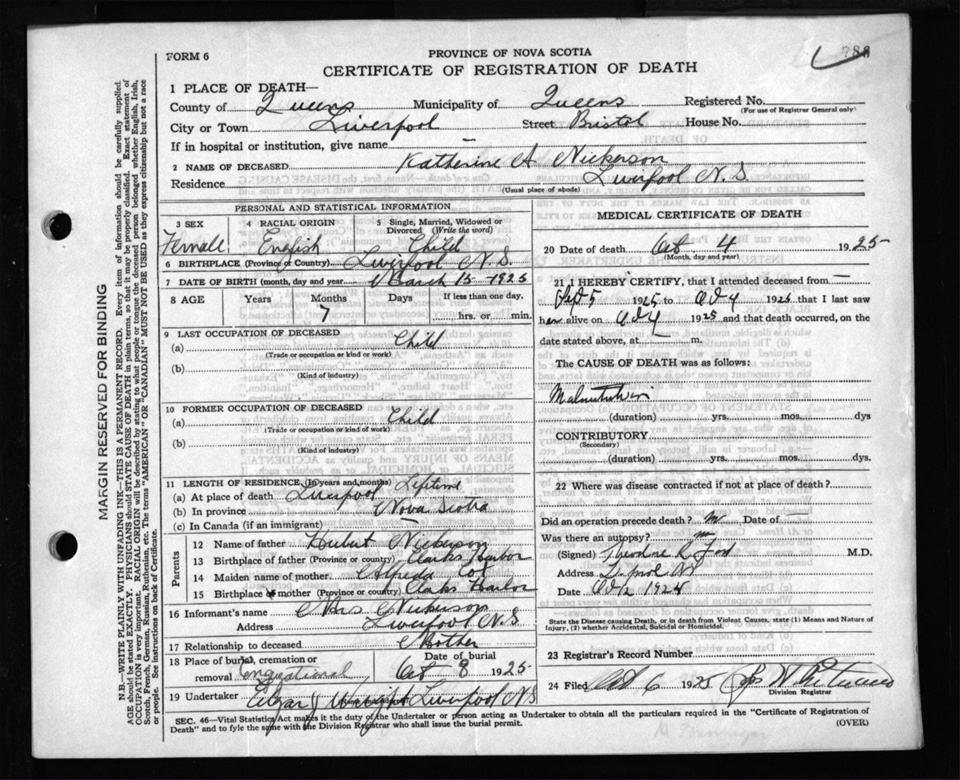 788
FORM 6
PROVINCE OF NOVA SCOTIA
CERTIFICATE OF REGISTRATION OF DEATH
1 PLACE OF DEATH—
County of Queens Municipality of Queens Registered No.
(For use of Registrar General only)
City or Town Liverpool Street Bristol House No.
If in hospital or institution, give name —
2 NAME OF DECEASED Katherine A Nickerson
Residence Liverpool N.S.
(Usual place of abode)
PERSONAL AND STATISTICAL INFORMATION
3 SEX 4 RACIAL ORIGIN 5 Single, Married, Widowed or Divorced (Write the word)
Female English Child
6 BIRTHPLACE (Province or Country) Liverpool N.S.
7 DATE OF BIRTH (month, day and year) March 15 1925
8 AGE Years Months Days If less than one day,
7 hrs. or min.
9 LAST OCCUPATION OF DECEASED
(a) Child
(Trade or occupation or kind or work)
(b)
(Kind of industry)
10 FORMER OCCUPATION OF DECEASED
(a) Child
(Trade or occupation or kind of work)
(b)
(Kind of industry)
11 LENGTH OF RESIDENCE (In years and months)
(a) At place of death Liverpool Lifetime
(b) In province Nova Scotia
(c) In Canada (if an immigrant) —
Parents
12 Name of father Hubert Nickerson
13 Birthplace of father (Province or country) Clarks Harbor
14 Maiden name of mother Alfreda
15 Birthplace of mother (Province or Country) Clarks Harbor
16 Informant's name Mrs Nickerson
Address Liverpool N.S
17 Relationship to deceased Mother
18 Place of burial, cremation or removal Date of burial
Oct 8 1925
19 Undertaker Edgar J Wright Liverpool N.S
MEDICAL CERTIFICATE OF DEATH
20 Date of death Oct 4 1925
(Month, day and year)
21 I HEREBY CERTIFY, that I attended deceased from —
Sept 5 1925 to Oct 4 1925 that I last saw
her alive on Oct 4 1925 and that death occurred, on
date stated above, at m.
The CAUSE OF DEATH was as follows:
Malnutrition
(duration) yrs. mos. dys
CONTRIBUTORY
(Secondary)
(duration) yrs. mos. dys.
22 Where was disease contracted if not at place of death?
Did an operation precede death? no Date of —
Was there an autopsy? no
(Signed) Theodore R Ford M.D.
Address L.pool NS
Date
State the Disease causing Death, or in death from Violent Causes, state (1) Means and Nature of Injury, (2) whether Accidental, Suicidal or Homicidal.
23 Registrar's Record Number
24 Filed Oct 6 1925
Division Registrar
SEC. 46—Vital Statistics Act makes it the duty of the Undertaker or person acting as Undertaker to obtain all the particulars required in the "Certificate of Registration of
Death" and to fyle the same with the Division Registrar who shall issue the burial permit. (OVER)
MARGIN RESERVED FOR BINDING
N.B.—WRITE PLAINLY WITH UNFADING INK—THIS IS A PERMANENT RECORD. Every item of information should be carefully supplied.
AGE should be stated EXACTLY. PHYSICIANS should STATE CAUSE OF DEATH in plain terms, so that it may be properly classified. Exact statement of
OCCUPATION is very important. RACIAL ORIGIN will be described by stating to what people or tongue the deceased person belonged whether English, Irish,
Scotch, French, German, Russian, Ruthenian, etc. The terms "AMERICAN" OR "CANADIAN" MUST NOT BE USED as they express citizenship but not a race
or people. See instructions on back of Certificate.